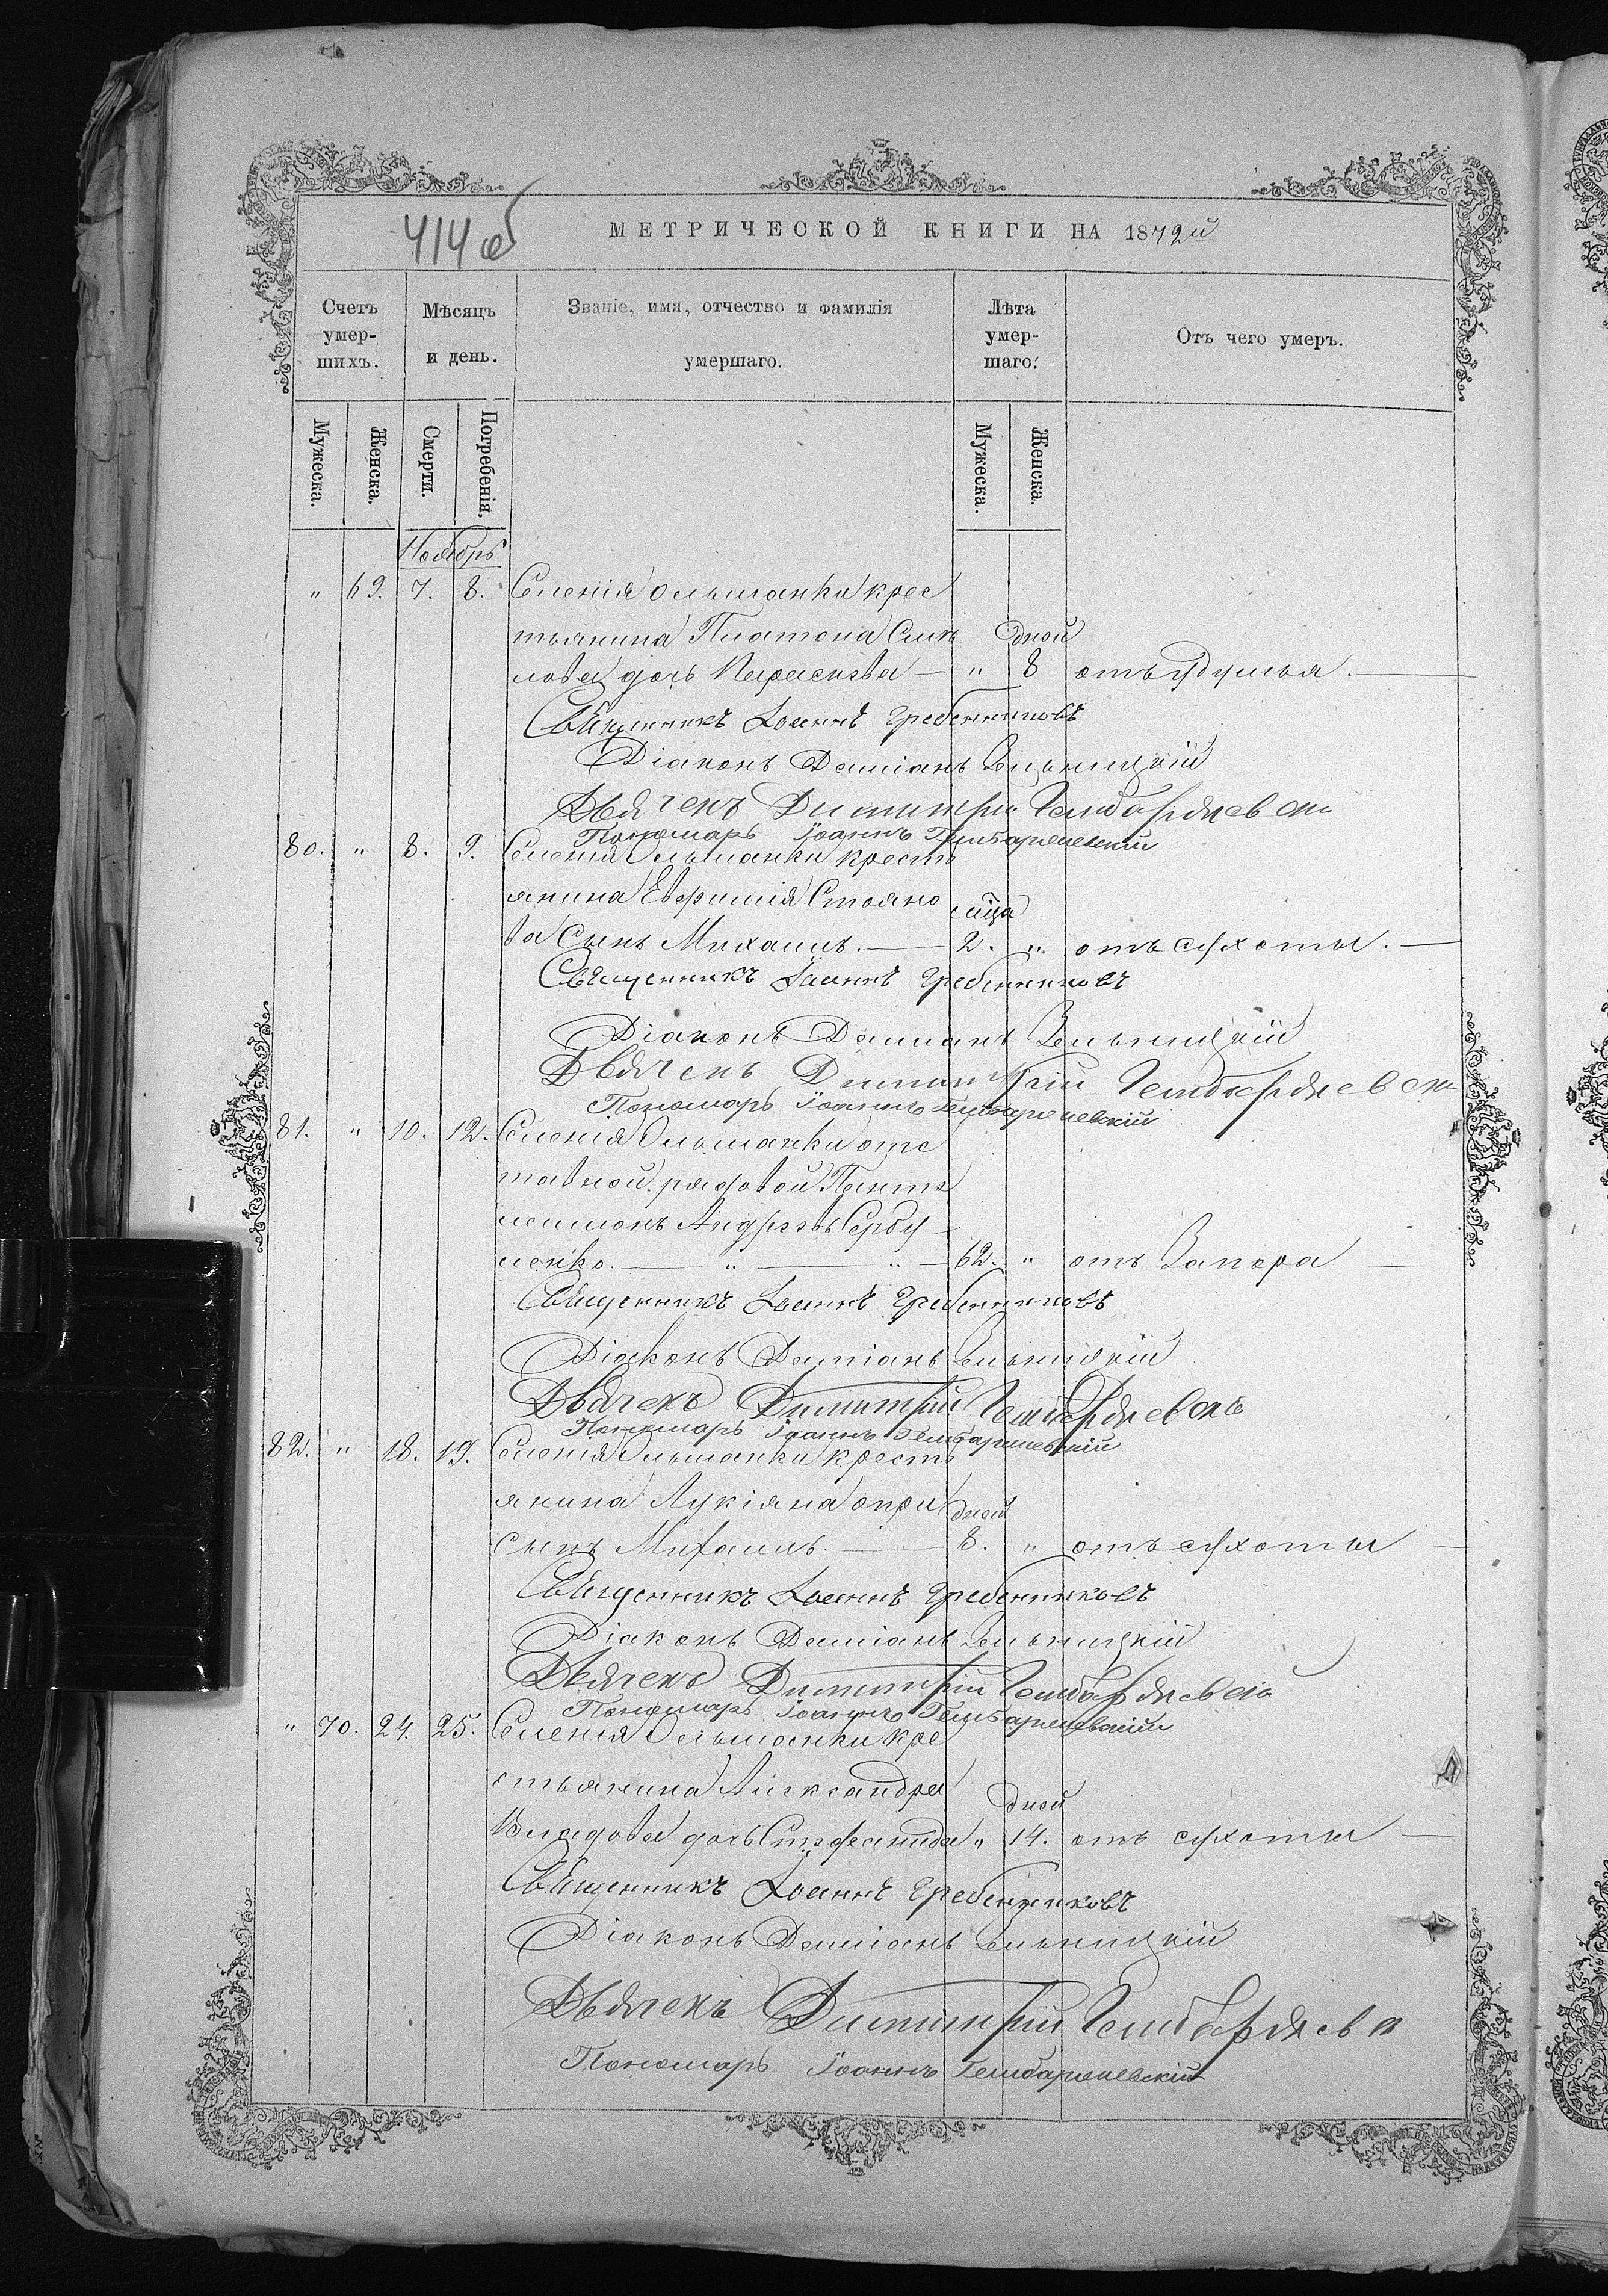 414 об
МЕТРИЧЕСКОЙ КНИГИ НА 1872й
Счетъ умер-шихъ.
Мѣсяцъ и день.
Званіе, имя, отчество и фамилія умершаго.
Лѣта умер-шаго.
Отъ чего умеръ.
Мужеска. Женска. Смерти. Погребенія. Мужеска. Женска.
Ноябрь
" 69. 7. 8. Селенія Ольшанки крес
тьянина Платона дней
лова дочь Параскева — " 8 отъ удушья. —
Священникъ Іоаннъ Гребенниковъ
Діаконъ Даміанъ Зельницкій
Дьячекъ Димитрій
Пономарь Іоаннъ Гембаржевскій
80. " 8. 9. Селенія Ольшанки кресть
янина Евфимія Стояно мѣца
ва Сынъ Михаилъ. — 2. " отъ сухоты. —
Священникъ Іоаннъ Гребенниковъ
Діаконъ Даміанъ Зельницкій
Дьячекъ Димитрій
Пономарь Іоаннъ Гембаржевскій
81. " 10. 12. Селенія Ольшанки отс
тавной рядовой Панте
леимонъ Андреевъ Сербу
ленко. — " — " — 62. " отъ Запора —
Священникъ Іоаннъ Гребенниковъ
Діаконъ Даміанъ Зельницкій
Дьячекъ Димитрій
Пономарь Іоаннъ Гембаржевскій
82. " 18. 19. Селенія Ольшанки кресть
янина Лукіяна дней
сынъ Михаилъ. — 8. " отъ сухоты —
Священникъ Іоаннъ Гребенниковъ
Діаконъ Даміанъ Зельницкій
Дьячекъ Димитрій
Пономарь Іоаннъ Гембаржевскій
" 70. 24. 25. Селенія Ольшанки кре
стьянина Александра дней
Владова дочь Стефанида " 14. отъ сухоты —
Священникъ Іоаннъ Гребенниковъ
Діаконъ Даміанъ Зельницкій
Дьячекъ Димитрій
Пономарь Іоаннъ Гембаржевскій